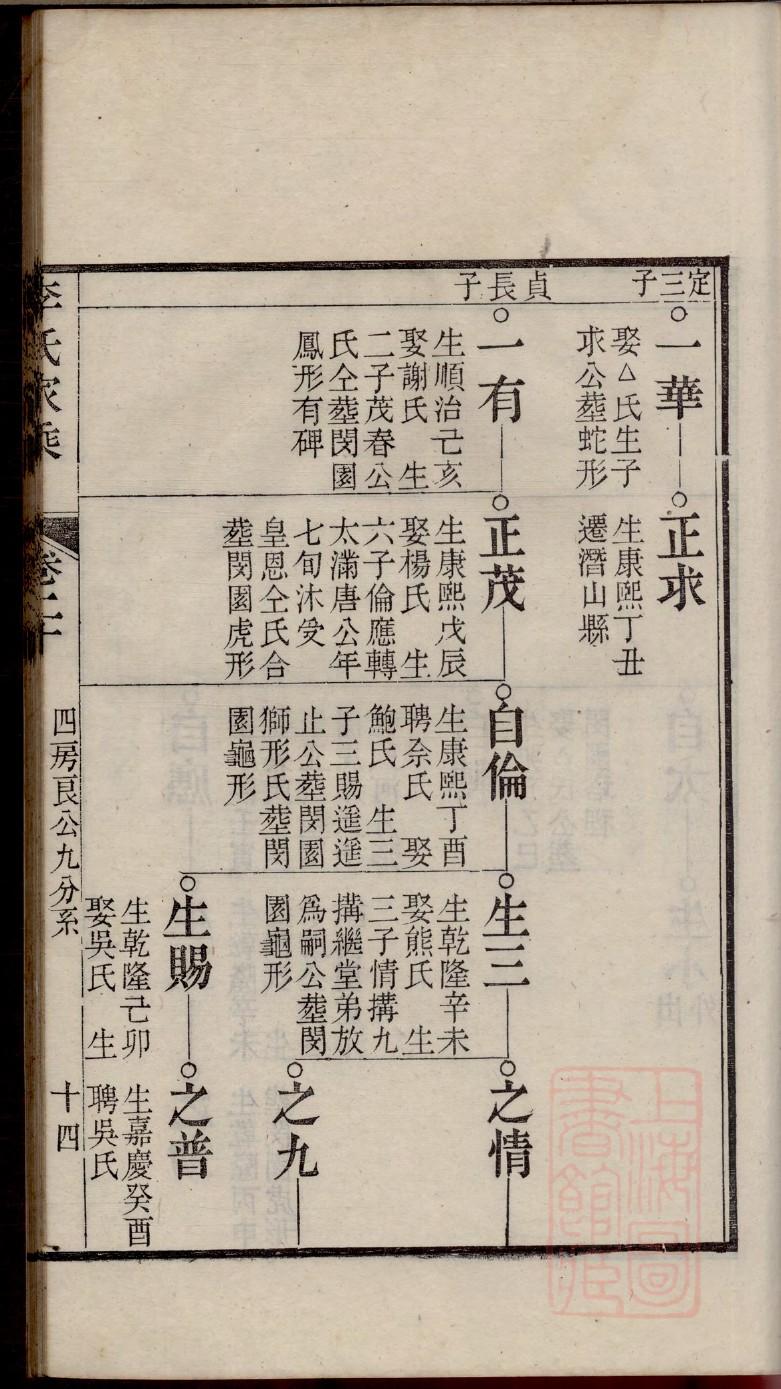 定三子
一華
娶△氏生子
求公塟蛇形
正求
生康熙丁丑
遷潛山縣
貞長子
一有
生順治己亥
娶謝氏 生
二子茂春公
氏仝塟閔園
鳳形有碑
正茂
生康熙戊辰
娶楊氏 生
六子倫應轉
太滿唐公年
七旬沐受
皇恩仝氏合
塟閔園虎形
自倫
生康熙丁酉
聘余氏 娶
鮑氏 生三
子三賜遥遥
止公塟閔園
獅形氏塟閔
園龜形
生三
生乾隆辛未
娶熊氏 生
三子情搆九
搆繼堂弟放
爲嗣公塟閔
園龜形
之情
之九
生賜
生乾隆己卯
娶吳氏 生
之普
生嘉慶癸酉
聘吳氏
李氏家乘
卷二十
四房良公九分系
十四
上海圖書館藏